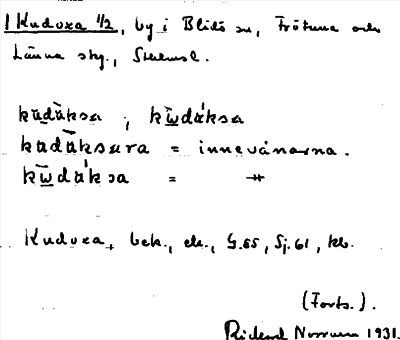 1 Kudoxa 1/2, by i Blidö sn, Frötuna och
Länna skg., Sthlmsl.
kūdùksa, kw̄dúksa
kūdùksara = innevånarna.
kw̄dúksa = "
Kudoxa, bek., ek., G.65, Sj.61, kb.
(Forts.).
Rickard Norrman 1931.